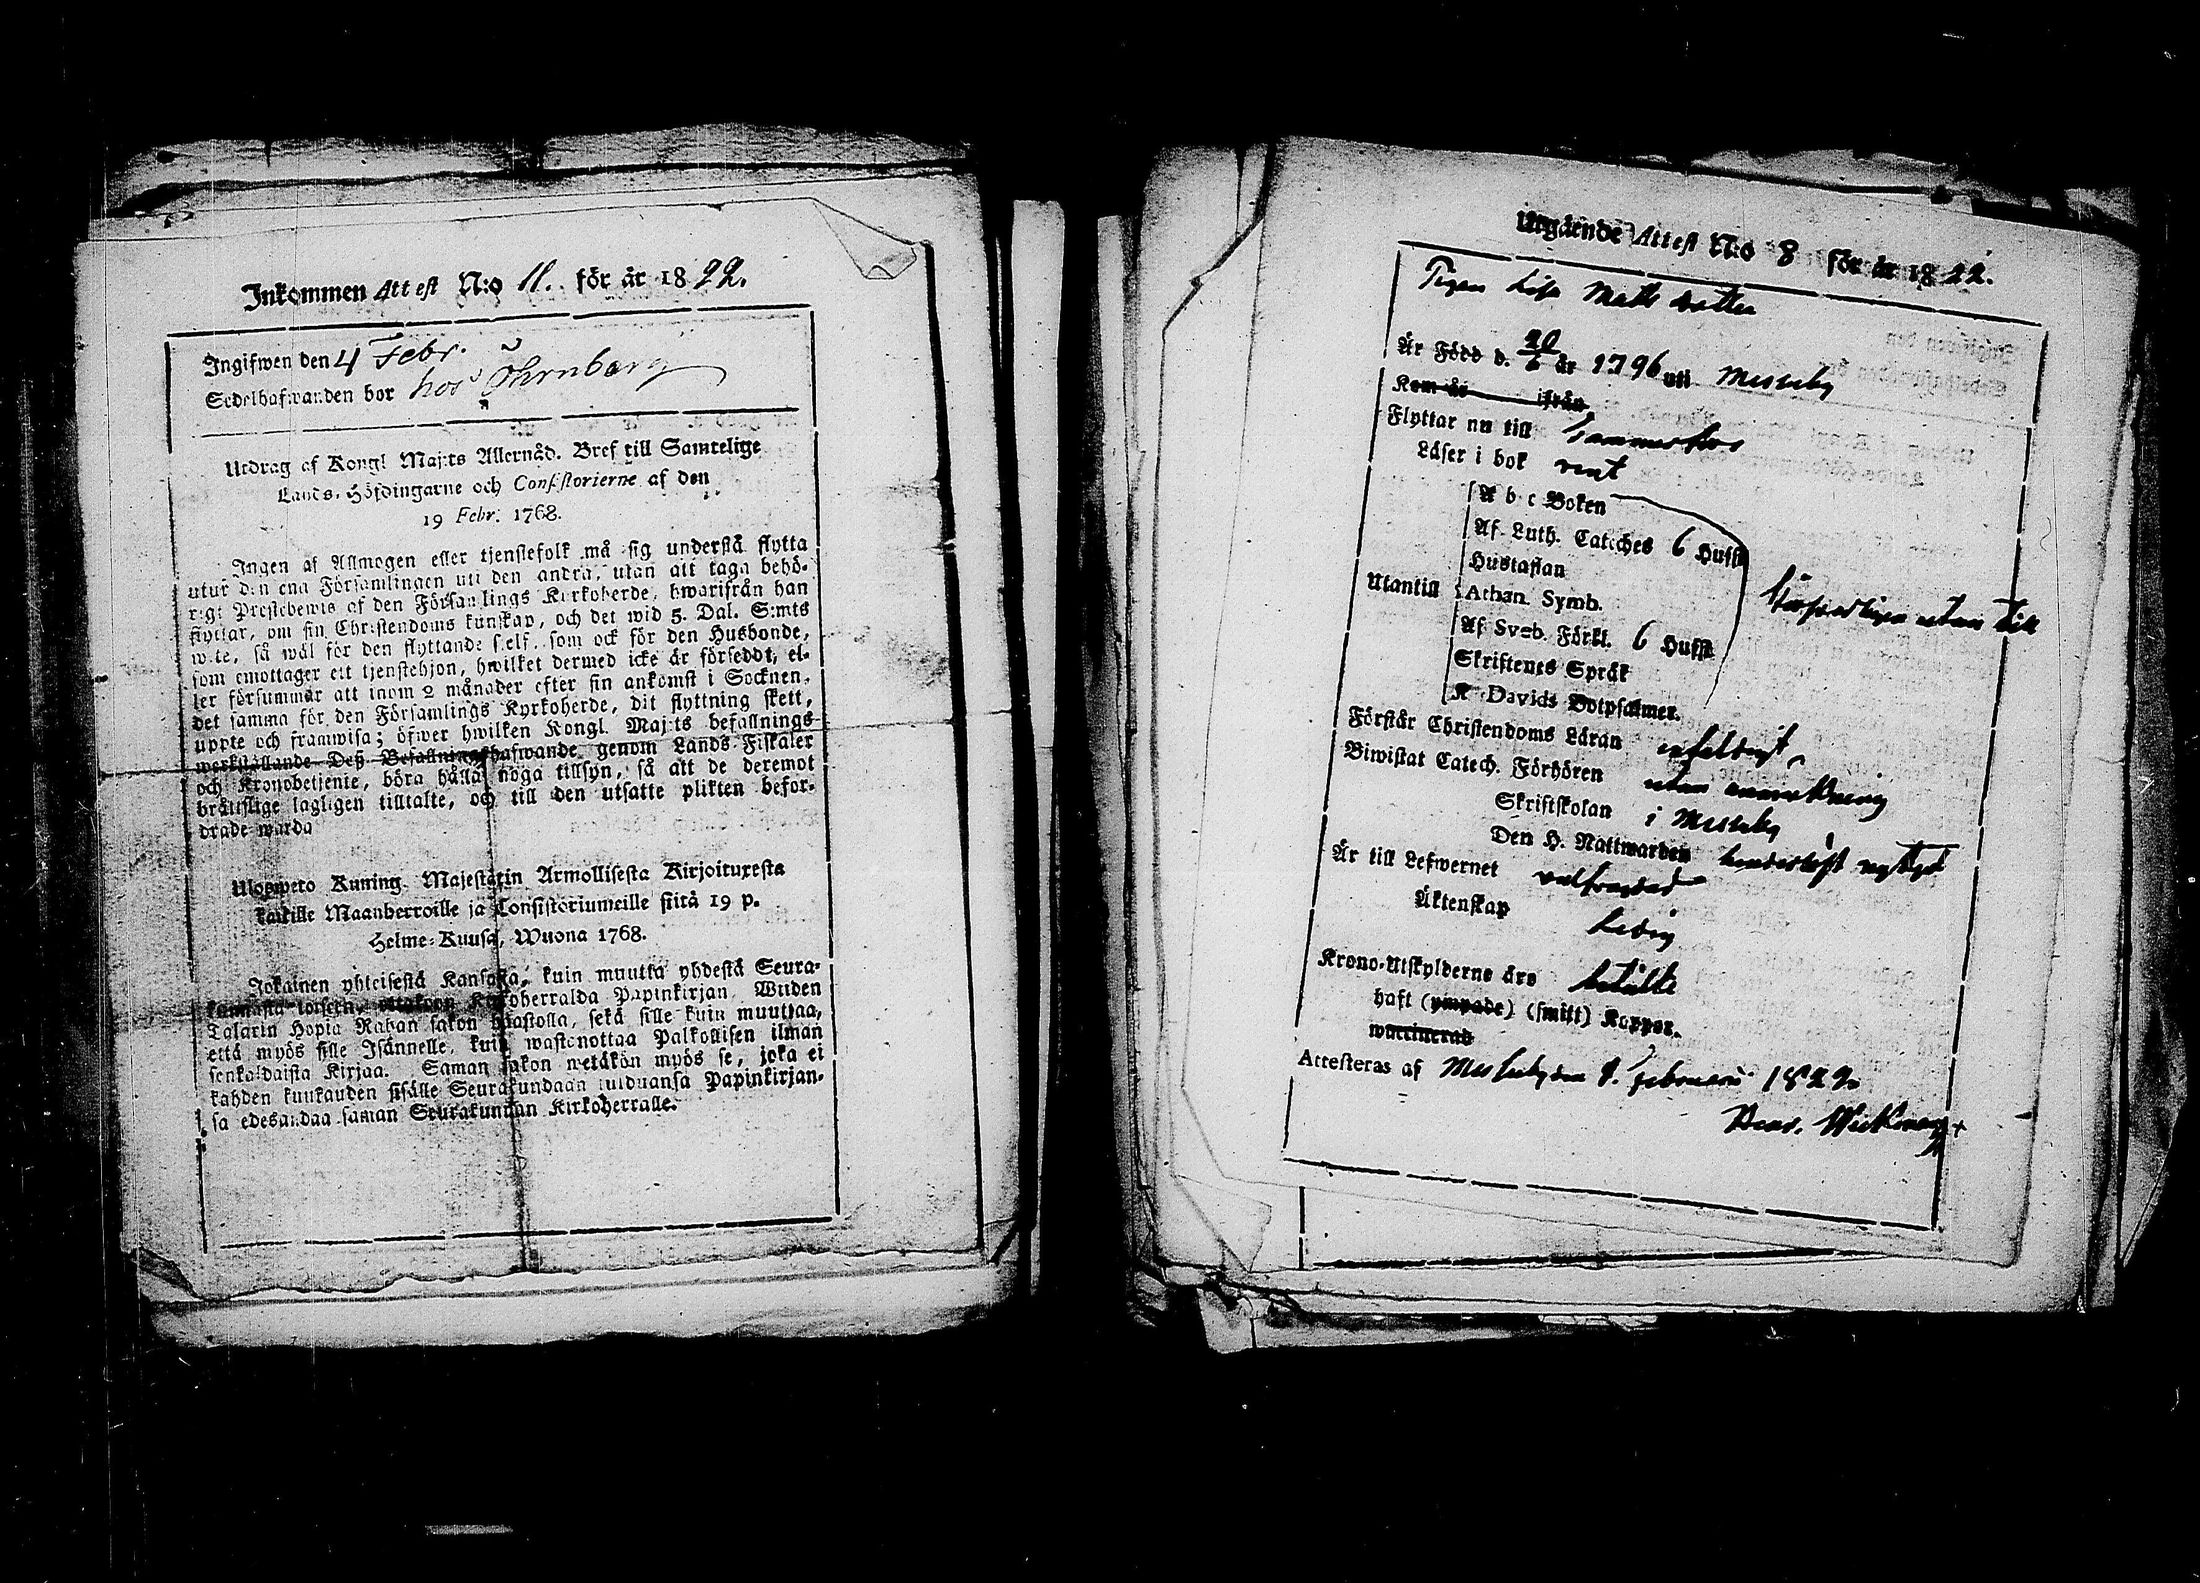 Inkommen Attest N:o 11. för år 1822.
Ingifwen den 4 Febr.
Sedelhafwanden bor hos Öhrnberg
Utdrag af Kongl Maj:ts Allernåd. Bref till Samtelige
Lands-Höfdingarne och Consistorierne af den
19 Febr. 1768.
Ingen af Allmogen eller tjenstefolk må sig understå flytta
utur den ena Församlingen uti den andra, utan att taga behö-
rigt Prestebewis af den Församlings Kyrkoherde, hwarifrån han
flyttar, om sin Christendoms kunskap, och det wid 5. Dal. S:mts
wite, så wäl för den flyttande self, som ock för den Husbonde,
som emottager ett tjenstehjon, hwilket dermed icke är försedt, el-
ler försummar att inom 2 månader efter sin ankomst i Socknen,
det samma för den Församlings Kyrkoherde, dit flyttning skett,
uppte och framwisa; öfwer hwilken Kongl Maj:ts befallnings
werkställande Deß Befallningshafwande genom Lands-Fiskaler
och Kronobetjente, böra hålla noga tillsyn, så att de deremot
bråttslige lagligen tilltalte, och till den utsatte plikten befor-
drade warda
Ulosweto Kuning. Majestätin Armollisesta Kirjoituxesta
kaikille Maanherroille ja Consistoriumeille siitä 19 p.
Helme-Kuusa, Wuona 1768.
Jokainen yhteisestä Kansasta, kuin muutta yhdestä Seura-
kunnasta toiseen, Kirkoherralda Papinkirjan Wijden
Talarin Hopia Rahan sakon haastolla, sekä sille kuin muuttaa,
että myös sille Isännelle, kuin wastanottaa Palkollisen ilman
senkaldaista Kirjaa. Saman sakon wetäkön myös se, joka ei
kahden kuukauden sisälle Seurakundaan tulduansa Papinkirjan-
sa edesandaa saman Seurakunnan Kirkoherralle.
Utgående Attest N:o 8 för år 1822.
Pigan Lisa Matts dotter
Är Född d. 20/6 år 1796 uti Messuby
Kom år ifrån
Flyttar nu till Tammerfors
Läser i bok rent
A b c Boken
Af Luth. Catches 6 Hufst
Hustaflan
Utantill Athan. Symb.
Af Sveb. Förkl. 6 Hufst
Skriftenes Språk
K Davids Botpsalmer.
utan till
Förstår Christendoms Läran enfaldigt
Biwistat Catech. Förhören utan anmärkning
Skriftskolan i Messuby
Den H. Nattwarden hinderlöst nyttjat
Är till Lefwernet välfrägdad
Äktenskap Ledig
Krono-Utskylderne äro betalte
haft (ympade) (smitt) Koppor.
waccinerad
Attesteras af Messuby den 1. Februari 1822.